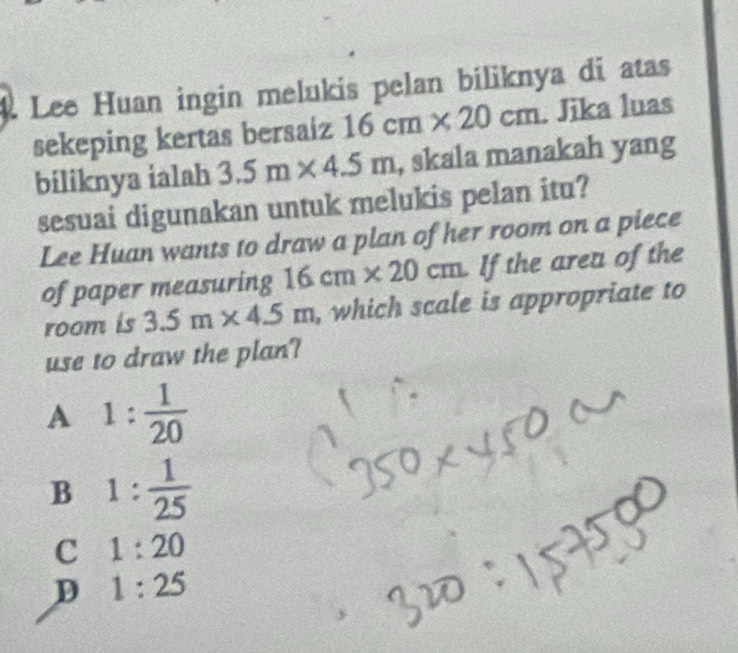 4. Lee Huan ingin melukis pelan biliknya di atas
sekeping kertas bersaiz 16 cm × 20 cm. Jika luas
biliknya ialah 3.5 m × 4.5 m, skala manakah yang
sesuai digunakan untuk melukis pelan itu?
Lee Huan wants to draw a plan of her room on a piece
of paper measuring 16 cm × 20 cm. If the area of the
room is 3.5 m × 4.5 m, which scale is appropriate to
use to draw the plan?
A 1 : 1/20
B 1 : 1/25
C 1 : 20
D 1 : 25
350 × 450
320 : 157500